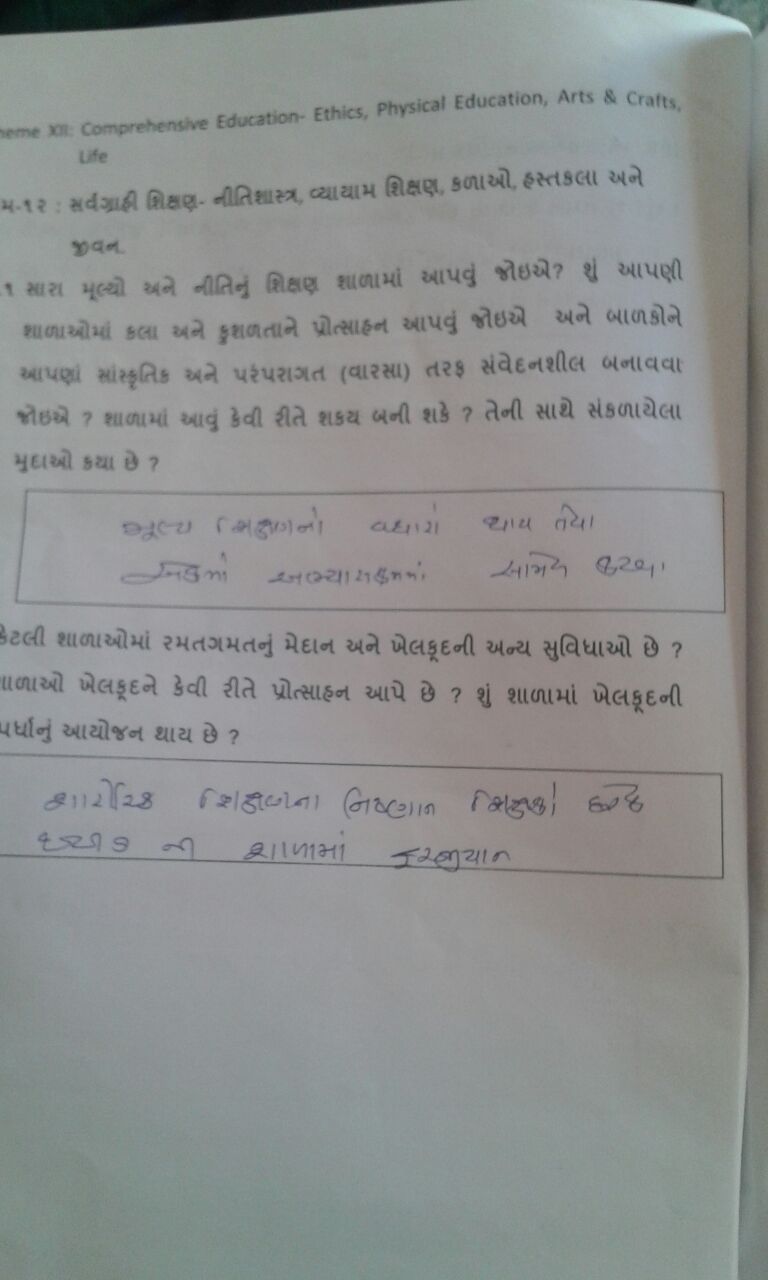 heme XII: Comprehensive Education- Ethics, Physical Education, Arts & Crafts,
Life
મ-૧૨ : સર્વગ્રાહી શિક્ષણ- નીતિશાસ્ત્ર, વ્યાયામ શિક્ષણ, કળાઓ, હસ્તકલા અને
જીવન.
.૧ સારા મૂલ્યો અને નીતિનું શિક્ષણ શાળામાં આપવું જોઇએ? શું આપણી
શાળાઓમાં કલા અને કુશળતાને પ્રોત્સાહન આપવું જોઇએ અને બાળકોને
આપણાં સાંસ્કૃતિક અને પરંપરાગત (વારસા) તરફ સંવેદનશીલ બનાવવા
જોઇએ ? શાળામાં આવું કેવી રીતે શકય બની શકે ? તેની સાથે સંકળાયેલા
મુદાઓ કયા છે ?
મૂલ્ય શિક્ષણનો વધારો થાય તેવા
અભ્યાસક્રમમાં સામેલ કરવા
કેટલી શાળાઓમાં રમતગમતનું મેદાન અને ખેલકૂદની અન્ય સુવિધાઓ છે ?
ાળાઓ ખેલકૂદને કેવી રીતે પ્રોત્સાહન આપે છે ? શું શાળામાં ખેલકૂદની
પર્ધાનું આયોજન થાય છે ?
શારીરિક શિક્ષણના નિષ્ણાત શિક્ષકો દરેક
ની શાળામાં ફરજીયાત